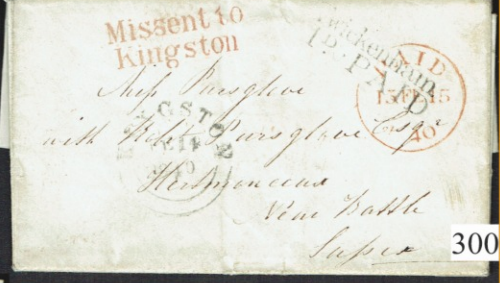 Missent to
Kingston
Twickenham
1D. PAID
PAID
15 FE 15
40
KINGSTON
FE 14
Miss Purglove
with Robt Pursglove Esqr
Hurstmonceux
Near Battle
Sussex
300